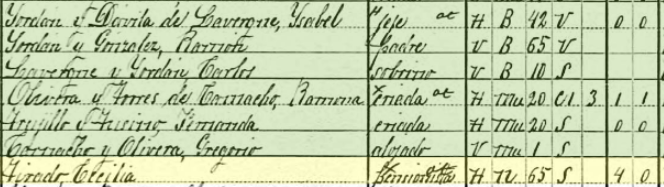 Jordán y Dávila de Lavergne, Ysabel Jefe at H B 42 V 0 0
Jordán y González, Ramón Padre V B 65 V
Lavergne y Jordán, Carlos sobrino V B 10 S
Olivera y Torres de Camacho, Ramona Criada at H Mu 20 C1 3 1 1
Trujillo y Fernanda criada H Mu 20 S 0 0
Camacho y Olivera, Gregorio alojado V Mu 1 S
Tirado, Cecilia Pensionista H N 65 S 4 0